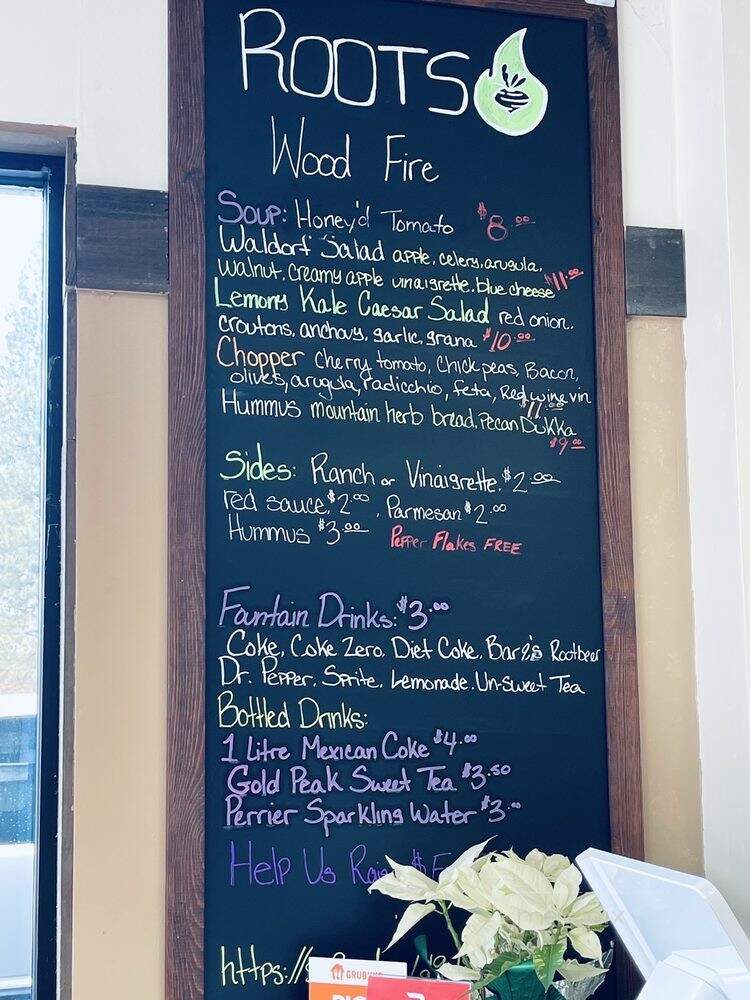 ROOTS
Wood Fire
Soup: Honey'd Tomato $8.00
Waldorf Salad apple, celery, arugula,
walnut, creamy apple vinaigrette, blue cheese $11.00
Lemony Kale Caesar Salad red onion,
croutons, anchovy, garlic, grana $10.00
Chopper Cherry tomato, Chick peas, Bacon,
olives, arugula, radicchio, feta, Red wine vin
$11.00
Hummus mountain herb bread, Pecan Dukka
$9.00
Sides: Ranch or Vinaigrette, $2.00
red sauce, $2.00, Parmesan $2.00
Hummus $3.00 Pepper Flakes FREE
Fountain Drinks: $3.00
Coke, Coke Zero, Diet Coke, Barq's Rootbeer
Dr. Pepper, Sprite, Lemonade, Un-Sweet Tea
Bottled Drinks:
1 Litre Mexican Coke $4.00
Gold Peak Sweet Tea $3.50
Perrier Sparkling Water $3.00
Help Us
https://
GRUBHUB